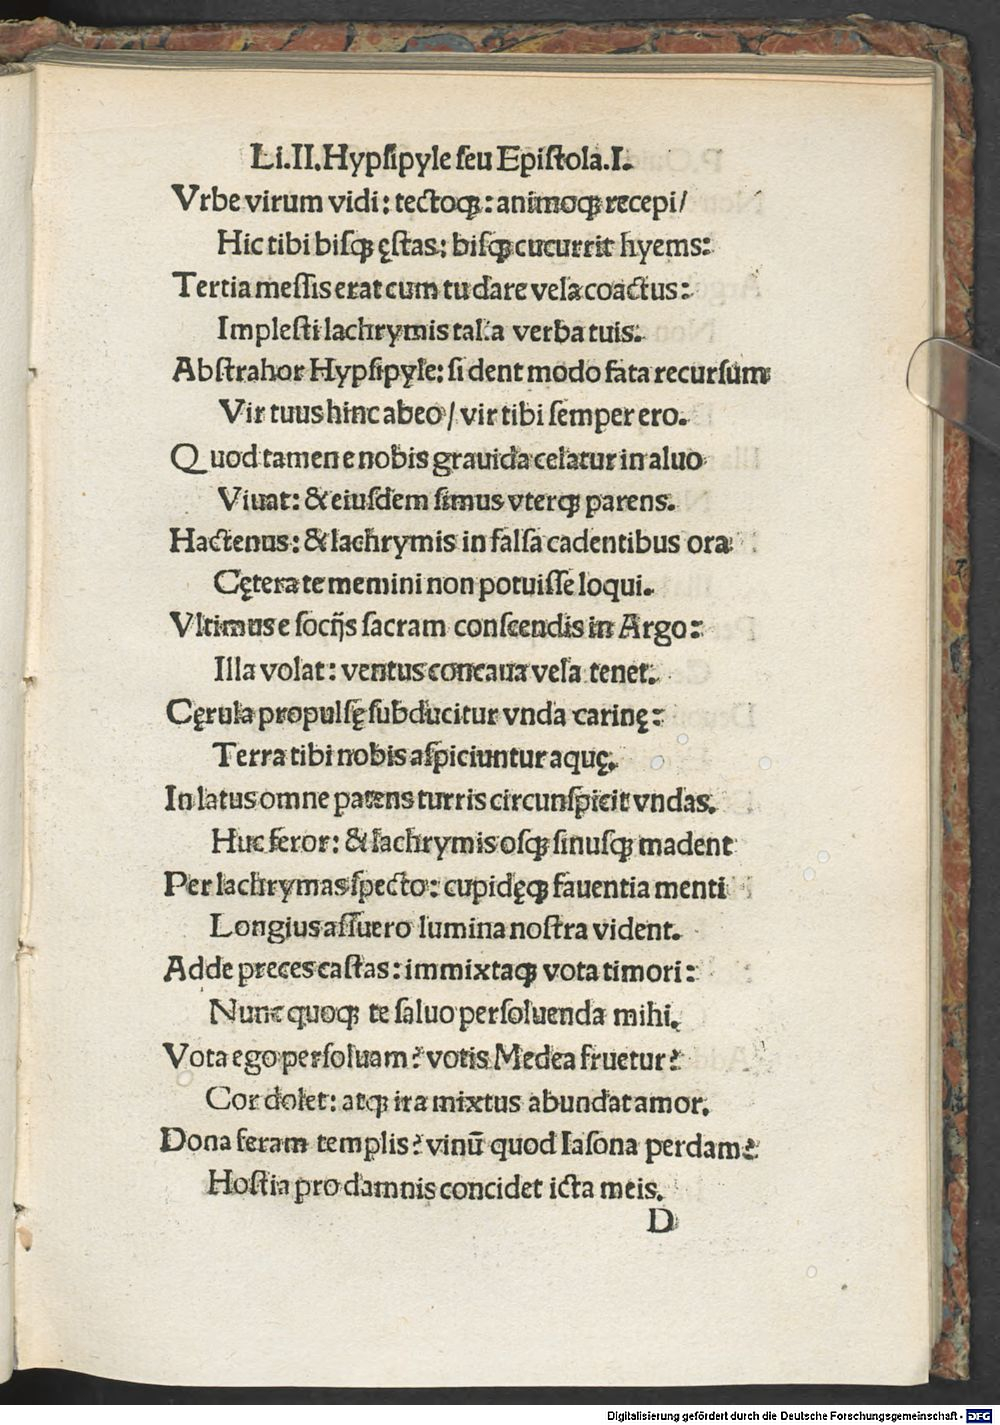 Li.II.Hypſipyle ſeu Epiſtola.I.
Vrbe virum vidi: tectoqꝫ: animoqꝫ recepi/
Hic tibi biſqꝫ ęſtas: biſqꝫ cucurrit hyems:
Tertia meſſis erat cum tu dare vela coactus:
Impleſti lachrymis talia verba tuis.
Abſtrahor Hypſipyle: ſi dent modo fata recurſum
Vir tuus hinc abeo/ vir tibi ſemper ero.
Quod tamen e nobis grauida celatur in aluo
Viuat: & eiuſdem ſimus vterqꝫ parens.
Hactenus: & lachrymis in falſa cadentibus ora
Cętera te memini non potuiſſe loqui.
Vltimus e ſocijs ſacram conſcendis in Argo:
Illa volat: ventus concaua vela tenet.
Cęrula propulſę ſubducitur vnda carinę:
Terra tibi nobis aſpiciuntur aquę.
In latus omne patens turris circunſpicit vndas.
Huc feror: & lachrymis oſqꝫ ſinuſqꝫ madent
Per lachrymas ſpecto: cupidęqꝫ fauentia menti
Longius aſſuero lumina noſtra vident.
Adde preces caſtas: immixtaqꝫ vota timori:
Nunc quoqꝫ te ſaluo perſoluenda mihi.
Vota ego perſoluam? votis Medea fruetur?
Cor dolet: atqꝫ ira mixtus abundat amor.
Dona feram templis? vinū quod Iaſona perdam?
Hoſtia pro damnis concidet icta meis.
D
Digitalisierung gefördert durch die Deutsche Forschungsgemeinschaft - DFG